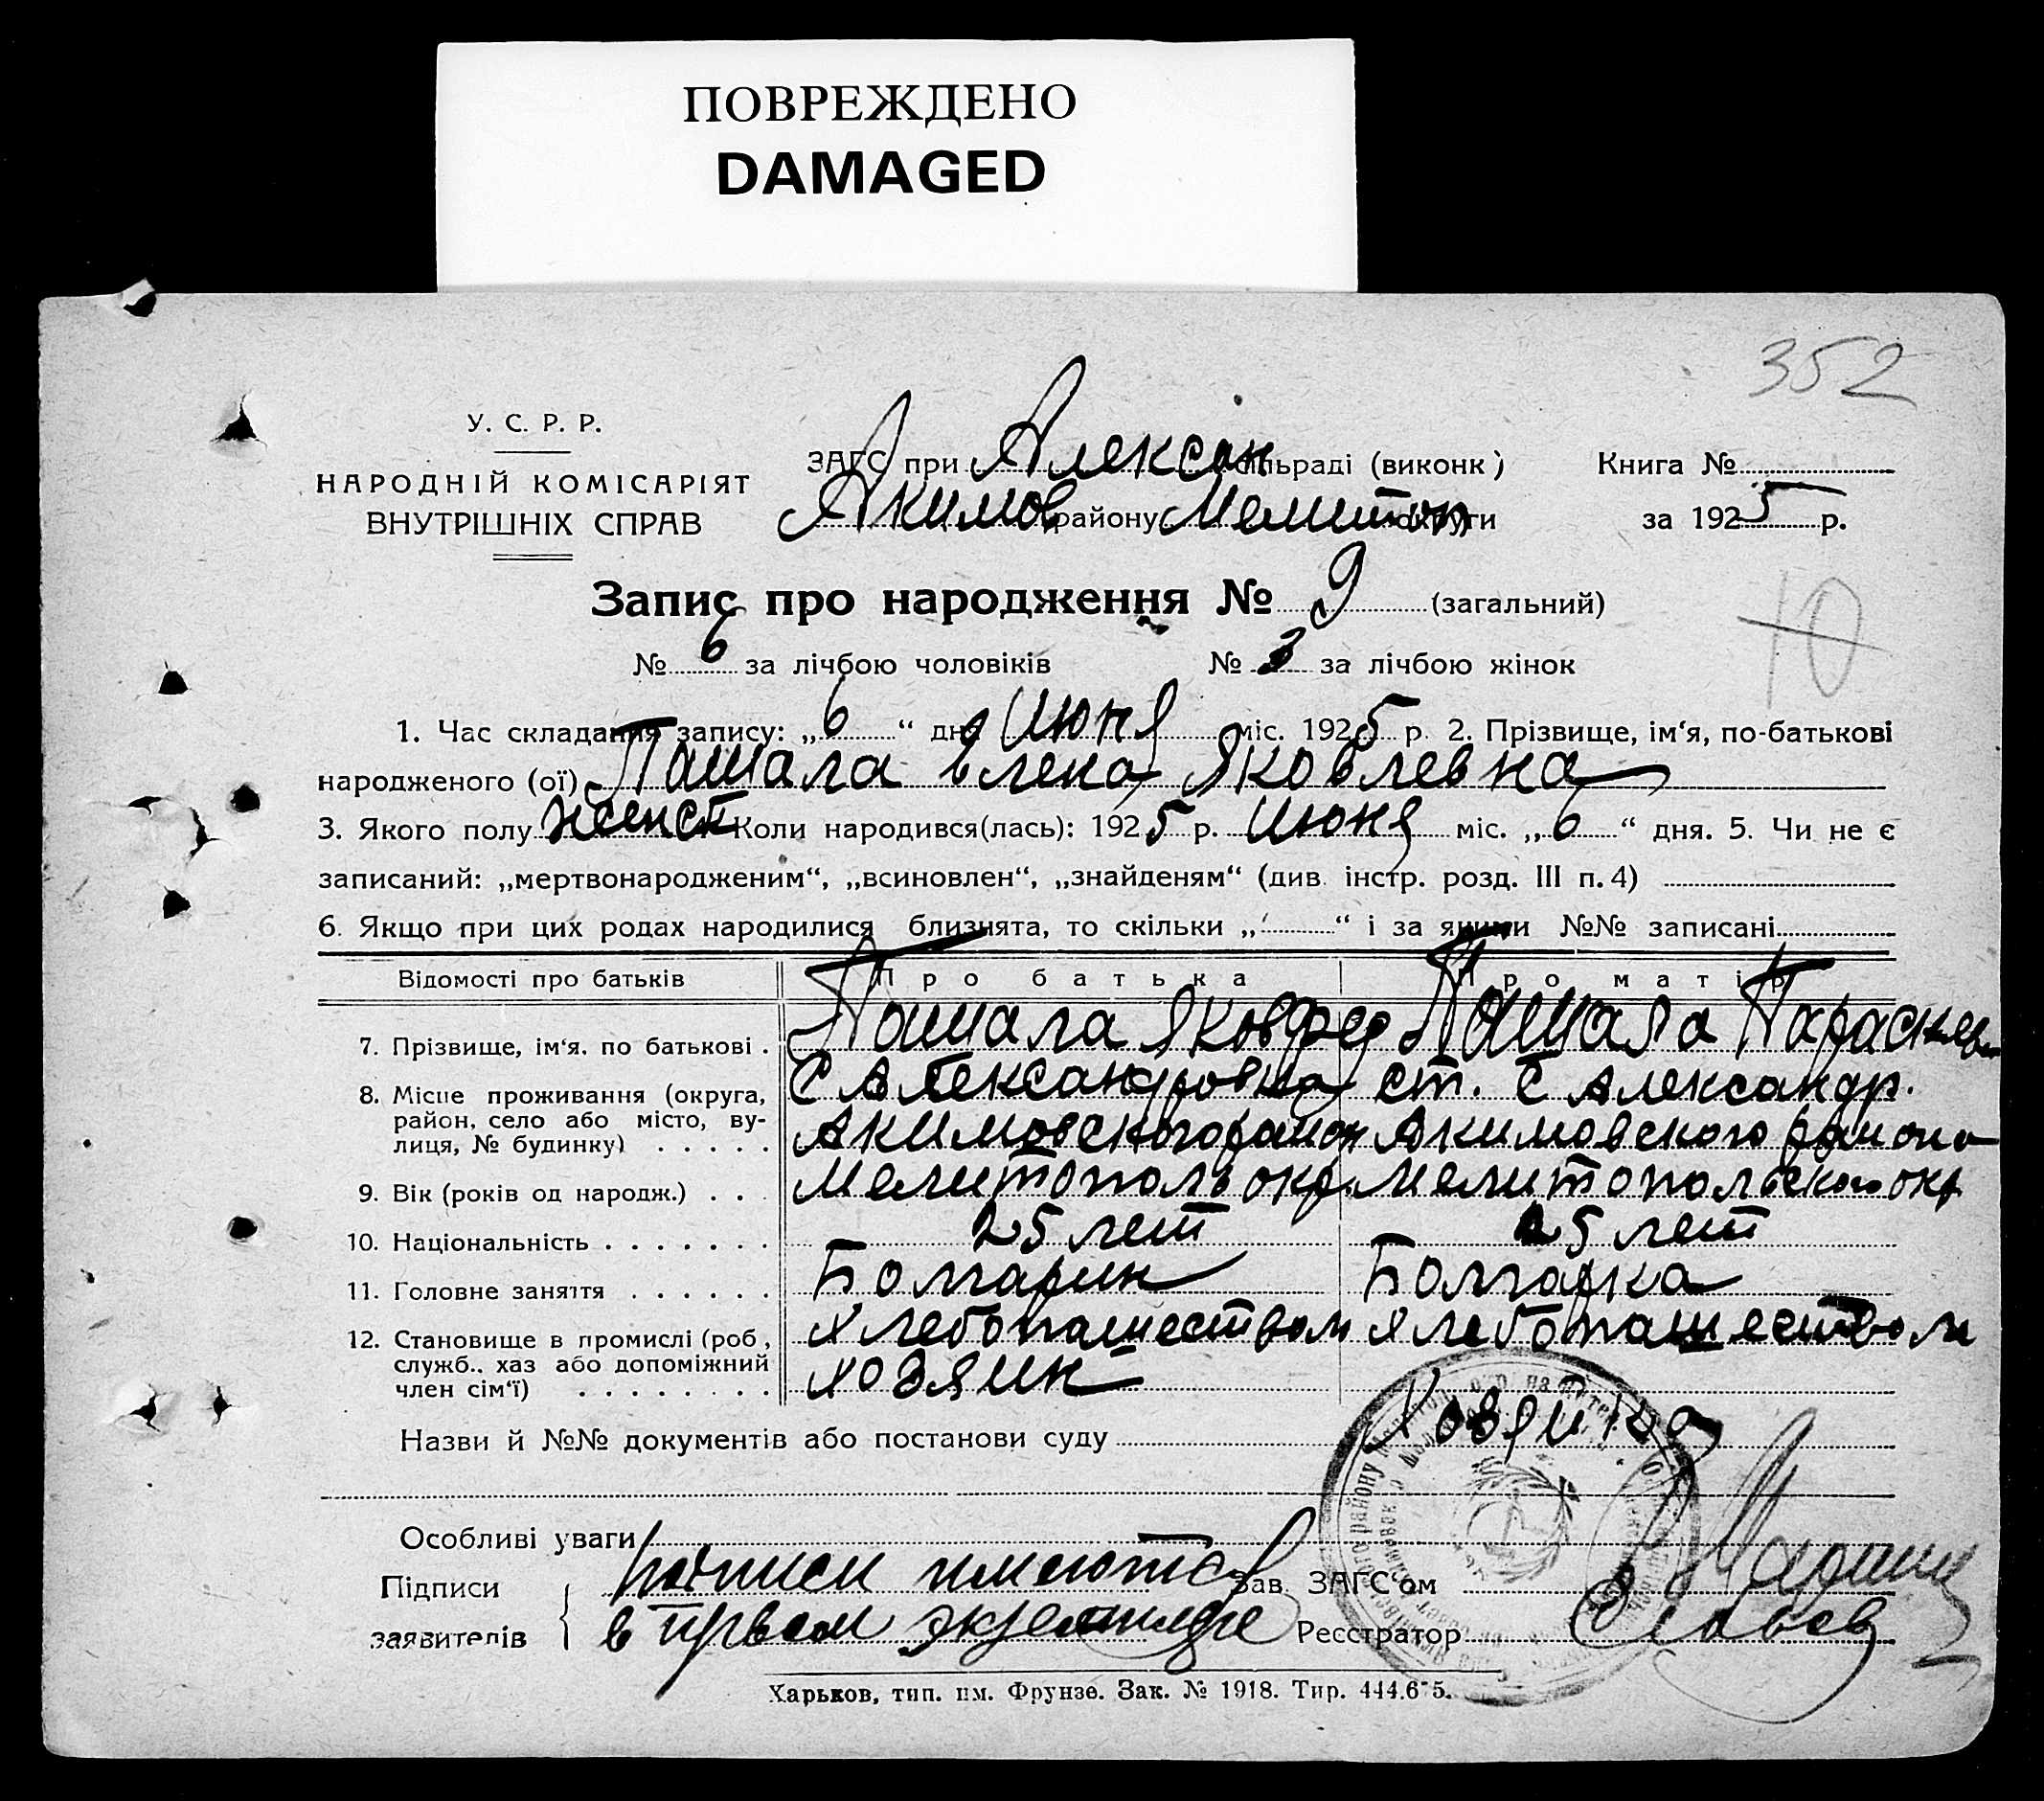 ПОВРЕЖДЕНО
DAMAGED
352
У. С. Р. Р.
НАРОДНІЙ КОМІСАРІЯТ
ВНУТРІШНІХ СПРАВ
ЗАГС при Алексан сільраді (виконк) Книга №
Акимов району Мелитоп округи за 1925 р.
Запис про народження № 9 (загальний)
10
№ 6 за лічбою чоловіків № 3 за лічбою жінок
1. Час складання запису: „6“ дня Июня міс. 1925 р. 2. Прізвище, ім‘я, по-батькові
народженого (ої) Пашала Елена Яковлевна
3. Якого полу женск Коли народився(лась): 1925 р. Июня міс. „6“ дня. 5. Чи не є
записаний: „мертвонародженим“, „всиновлен“, „знайденям“ (див. інстр. розд. III п. 4)
6. Якщо при цих родах народилися близнята, то скільки „ “ і за якими №№ записані
Відомості про батьків Про батька Про матір
7. Прізвище, ім‘я. по батькові . Пашала Яков Пашала Параскев
8. Місце проживання (округа, С Александровка ст. С Александр.
район, село або місто, ву- Акимовского район Акимовского района
лиця, № будинку) . . . . .
9. Вік (років од народж.) . . . Мелитополь окр. Мелитопольского окр
10. Національність . . . . . . . 25 лет 25 лет
11. Головне заняття . . . . . . Болгарин Болгарка
12. Становище в промислі (роб., хлебопашеством хлебопашеством
служб., хаз або допоміжний хозяин
член сім‘ї) . . . . . . . .
Хозяйка
Назви й №№ документів або постанови суду
Особливі уваги
Підписи подписи имеются Зав. ЗАГС‘ом
заявителів в первом экземпляре Реєстратор
Харьков, тип. им. Фрунзе. Зак. № 1918. Тир. 444.675.